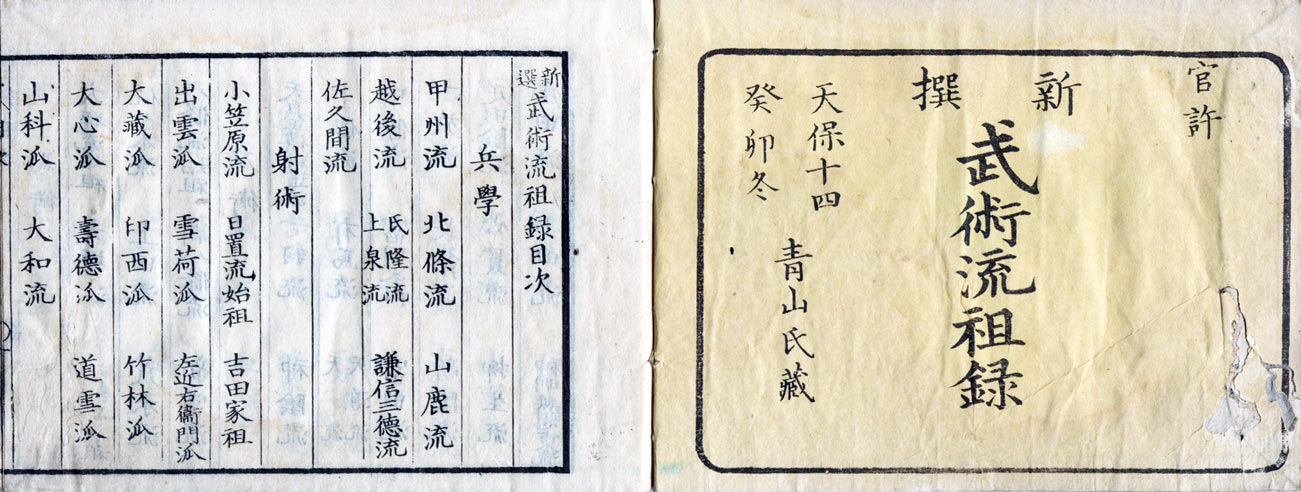 官許
新撰
武術流祖録
天保十四
癸卯冬
青山氏藏
新選武術流祖録目次
兵學
甲州流 北條流 山鹿流
越後流 氏隆流 上泉流 謙信三德流
佐久間流
射術
小笠原流 日置流始祖 吉田家祖
出雲泒 雪荷泒 左近右衞門泒
大藏泒 印西泒 竹林泒
大心泒 壽德泒 道雪泒
山科泒 大和流